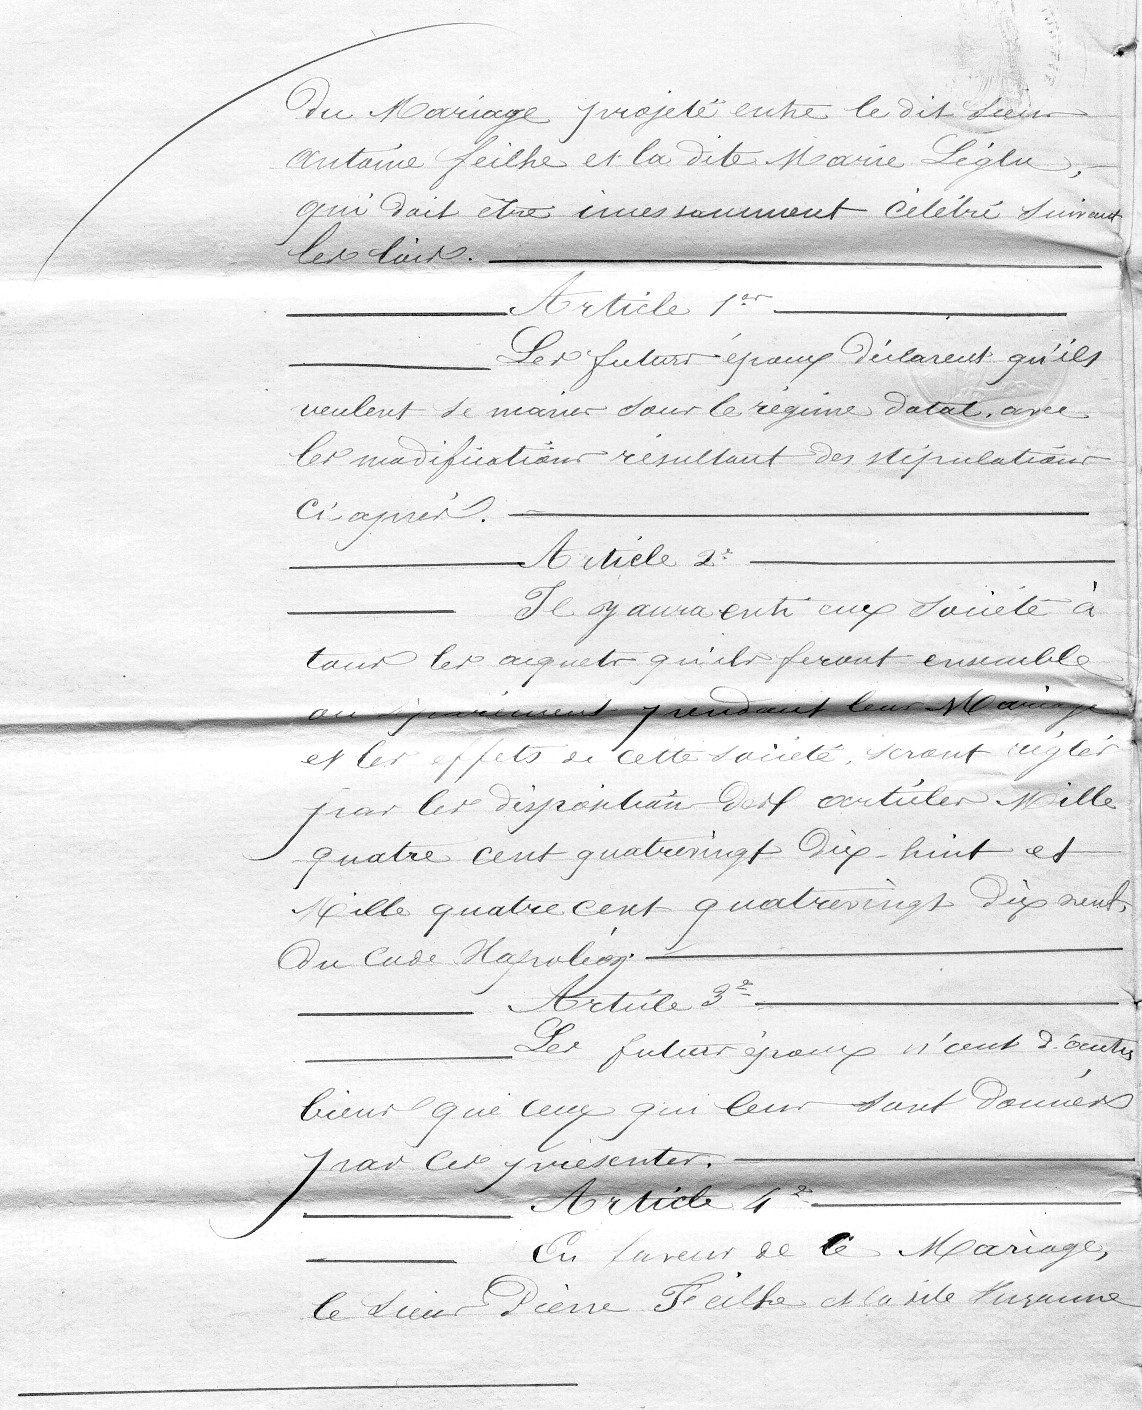 du Mariage projeté entre le dit sieur
Antoine Feilhe et la dite Marie Léglu,
qui doit être incessamment célébré suivant
les lois.
Article 1er
Les futurs époux déclarent qu'ils
veulent se marier sous le régime dotal, avec
les modifications résultant des stipulations
ci après.
Article 2e
Il y aura entre eux société à
tous les acquets qu'ils feront ensemble
ou séparément pendant leur Mariage
et les effets de cette société, seront réglés
par les disposition des articles Mille
quatre cent quatrevingt dix-huit et
Mille quatre cent quatrevingt dix neuf,
du Code Napoléon.
Article 3e
Les futurs époux n'ont d'autres
biens que ceux qui leur sont donnés
par ces présentes.
Article 4e
En faveur de ce Mariage,
le sieur Pierre Feilhe et la dite Suzanne